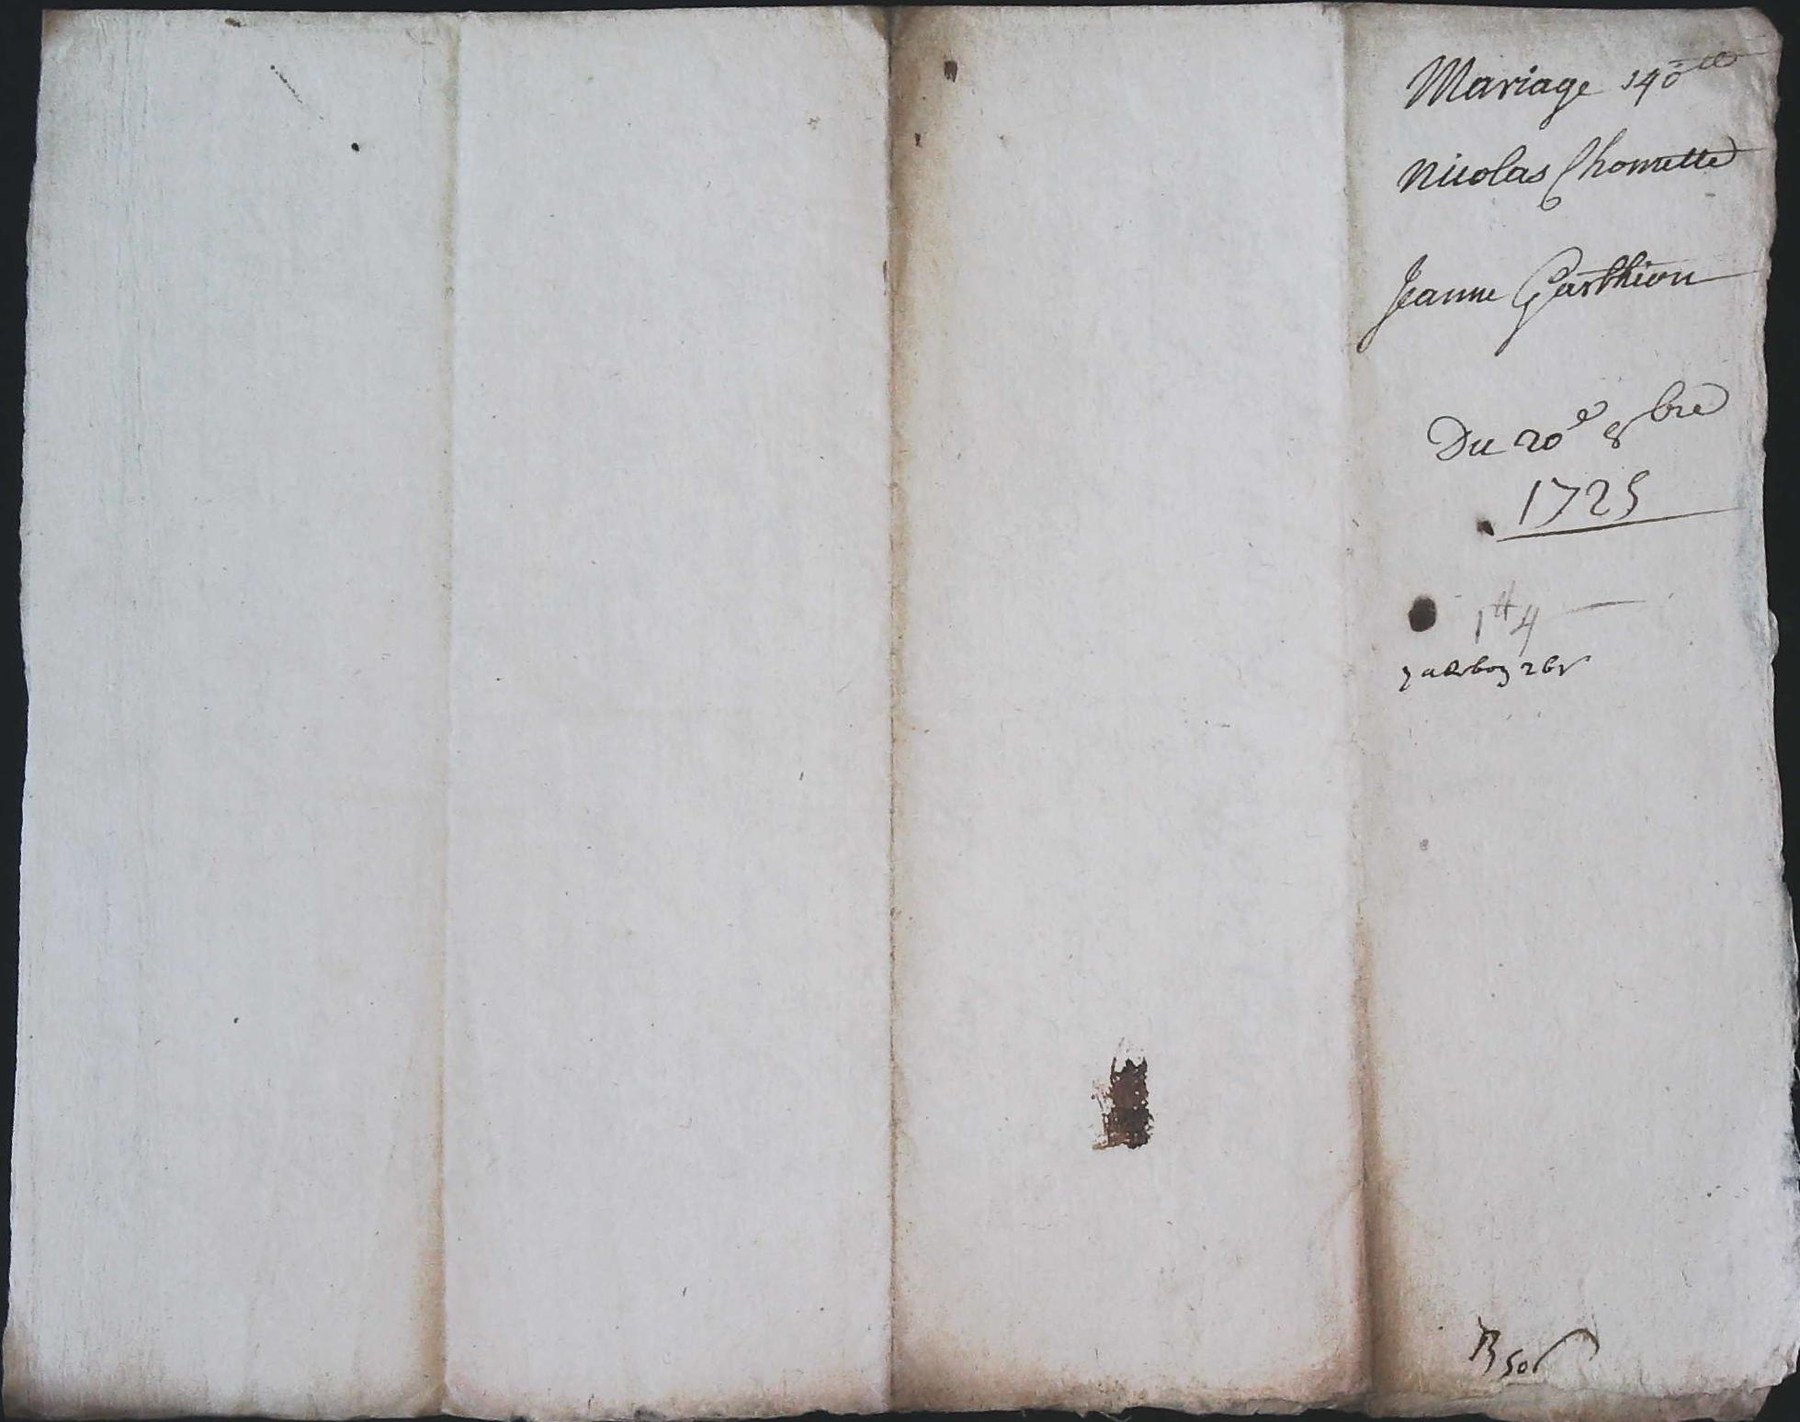 Mariage 140 ₶
Nicolas Chomette
Jeanne Garthion
Du 20e 8bre
1725
1 ₶ 4